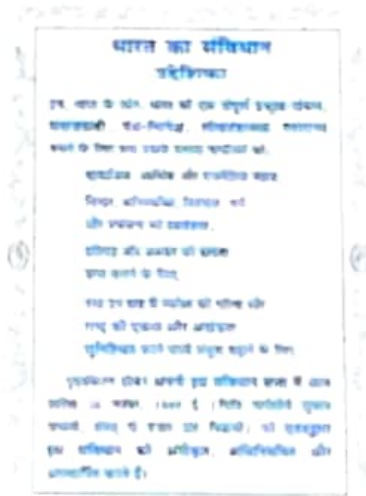 भारत का संविधान
उद्देशिका
हम, भारत के लोग, भारत को एक संपूर्ण प्रभुत्व-संपन्न,
समाजवादी, पंथ-निरपेक्ष, लोकतंत्रात्मक गणराज्य
बनाने के लिए तथा उसके समस्त नागरिकों को:
सामाजिक, आर्थिक और राजनैतिक न्याय
विचार, अभिव्यक्ति, विश्वास, धर्म
और उपासना की स्वतंत्रता,
प्रतिष्ठा और अवसर की समता
प्राप्त कराने के लिए,
तथा उन सब में व्यक्ति की गरिमा और
राष्ट्र की एकता और अखंडता
सुनिश्चित करने वाली बंधुता बढ़ाने के लिए
दृढ़संकल्प होकर अपनी इस संविधान सभा में आज
तारीख 26 नवंबर, 1949 ई. (मिति मार्गशीर्ष शुक्ल
सप्तमी, संवत् दो हजार छह विक्रमी) को एतद्द्वारा
इस संविधान को अंगीकृत, अधिनियमित और
आत्मार्पित करते हैं।